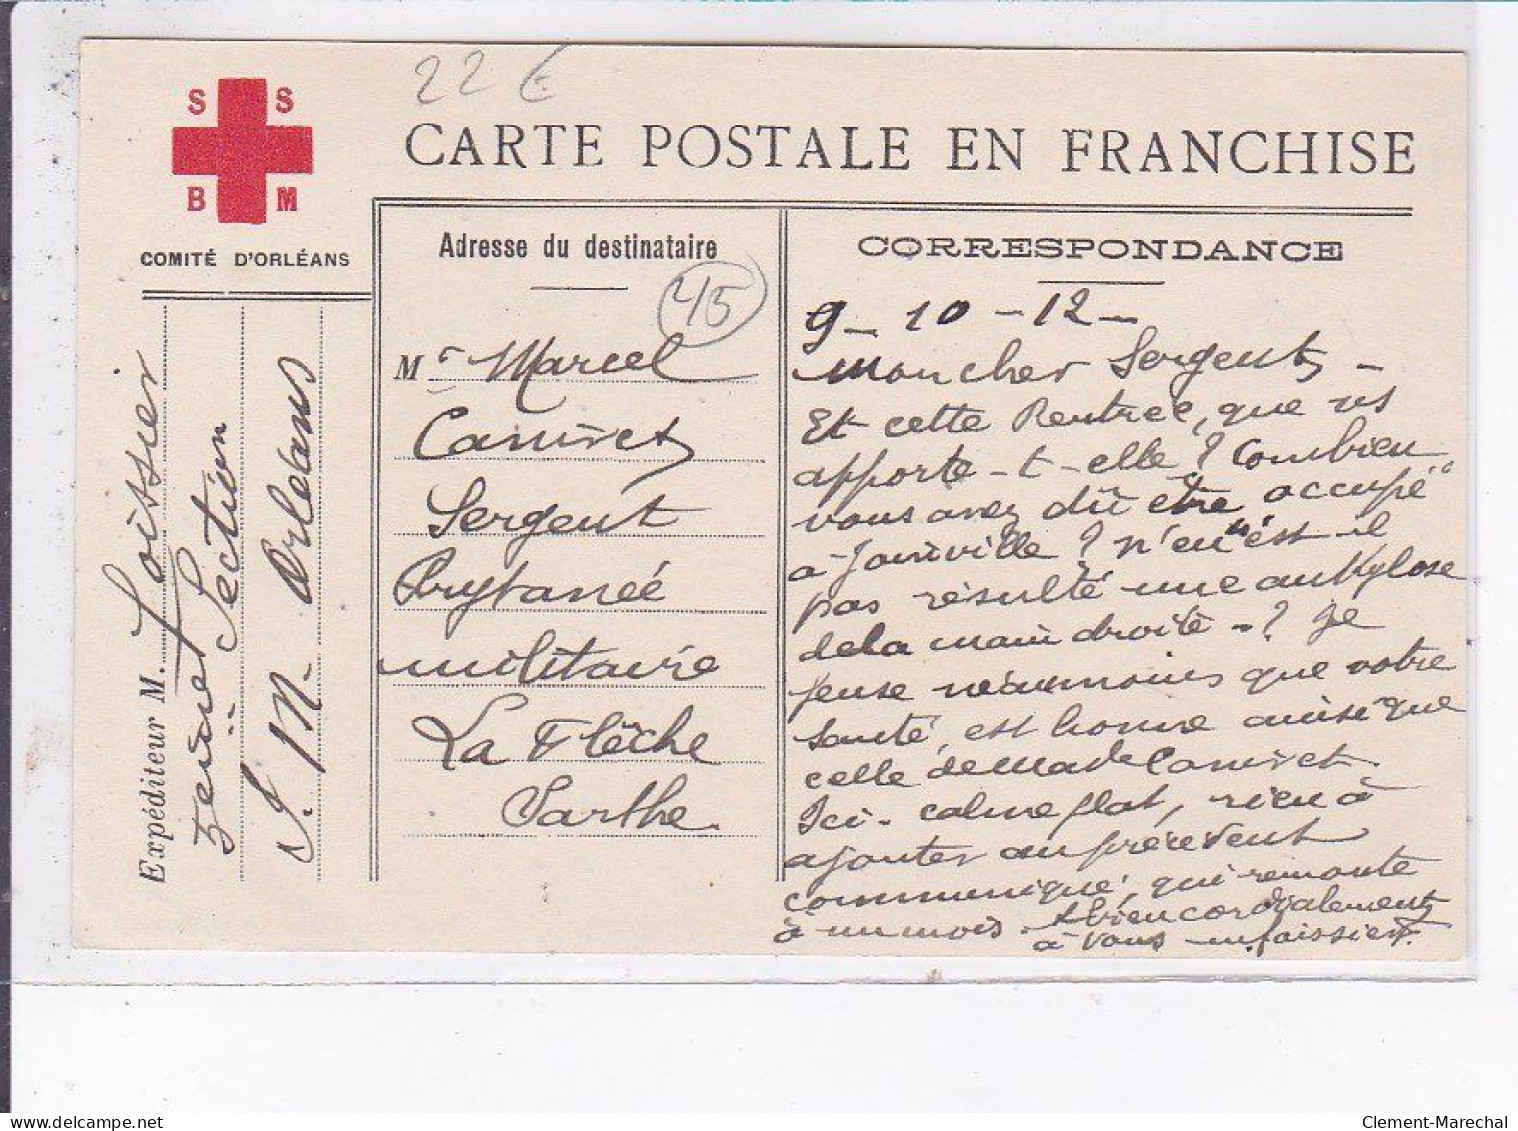 22 €
S S
B M
COMITÉ D'ORLÉANS
CARTE POSTALE EN FRANCHISE
Adresse du destinataire
45
Mr Marcel
Canivet
Sergent
Prytanée
militaire
La Flèche
Sarthe
Expéditeur M. Foissier
Section
S. M. Orléans
CORRESPONDANCE
9 - 10 - 12 -
Mon cher Sergent -
Et cette Rentrée, que vs
apporte - t - elle ? Combien
vous avez dû être occupé
à Joinville ? n'en est-il
pas résulté une ankylose
de la main droite - ? Je
pense néanmoins que votre
santé, est bonne ainsi que
celle de Made Canivet.
Ici - calme plat, rien à
ajouter au précédent
communiqué, qui remonte
à un mois. bien cordialement
à vous m. foissier
delcampe.net
Clement-Marechal